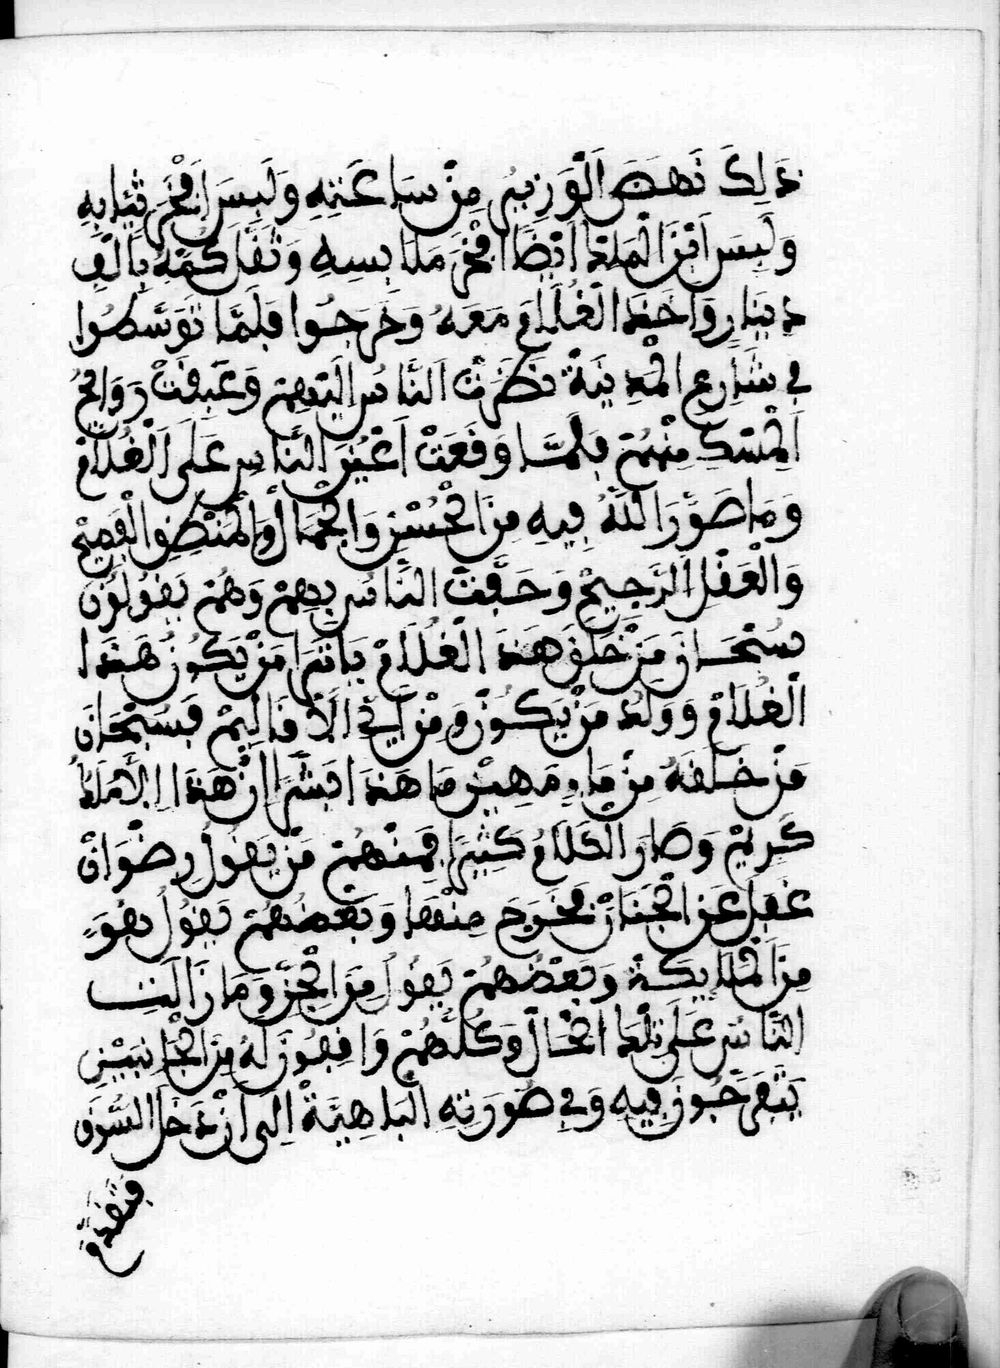 ذَلِكَ نَهَضَ الْوَزِيرُ مِنْ سَاعَتِهِ وَلَبِسَ أَفْخَرَ ثِيَابِهِ
وَلَبِسَ ابْنُ الْمَلِكِ أَيْضًا أَفْخَرَ مَلَابِسِهِ وَثَقَّلَ كُمَّهُ بِأَلْفِ
دِينَارٍ وَأَخَذَ الْغُلَامَ مَعَهُ وَخَرَجُوا فَلَمَّا تَوَسَّطُوا
فِي شَارِعِ الْمَدِينَةِ نَظَرَتِ النَّاسُ إِلَيْهِمْ وَعَبِقَتْ رَوَائِحُ
الْمِسْكِ مِنْهُمْ فَلَمَّا وَقَعَتْ أَعْيُنُ النَّاسِ عَلَى الْغُلَامِ
وَمَا صَوَّرَ اللَّهُ فِيهِ مِنَ الْحُسْنِ وَالْجَمَالِ وَالْمَنْطِقِ الْفَصِيحِ
وَالْعَقْلِ الرَّجِيحِ وَحَفَّتِ النَّاسُ بِهِمْ وَهُمْ يَقُولُونَ
سُبْحَانَ مَنْ خَلَقَ هَذَا الْغُلَامَ يَا تَرَا مَنْ يَكُونُ هَذَا
الْغُلَامُ وَوَلَدُ مَنْ يَكُونُ وَمِنْ أَيِّ الْأَقَالِيمِ فَسُبْحَانَ
مَنْ خَلَقَهُ مِنْ مَاءٍ مَهِينٍ مَا هَذَا بَشَرًا إِنْ هَذَا إِلَّا مَلَكٌ
كَرِيمٌ وَصَارَ الْكَلَامُ كَثِيرًا فَمِنْهُمْ مَنْ يَقُولُ رِضْوَانُ
غَفَلَ عَنِ الْجِنَانِ فَخَرَجَ مِنْهَا وَبَعْضُهُمْ يَقُولُ هُوَ
مِنَ الْمَلَايِكَةِ وَبَعْضُهُمْ يَقُولُ مِنَ الْجِنِّ وَمَا زَالَتِ
النَّاسُ عَلَى تِلْكَ الْحَالِ وَكُلُّهُمْ وَاقِفُونَ لَهُ مِنَ الْجَانِبَيْنِ
يَتَفَرَّجُونَ فِيهِ وَفِي صُورَتِهِ الْبَاهِيَةِ إِلَى أَنْ دَخَلَ السُّوقَ
فَتَقَدَّمَ